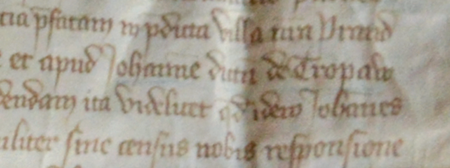 cia p̄fatam in p̄dicta villa
et apud Johanne de Tropaw
dendam ita videlicet q̄d idem Johānes
iliter sine census nobis responsione